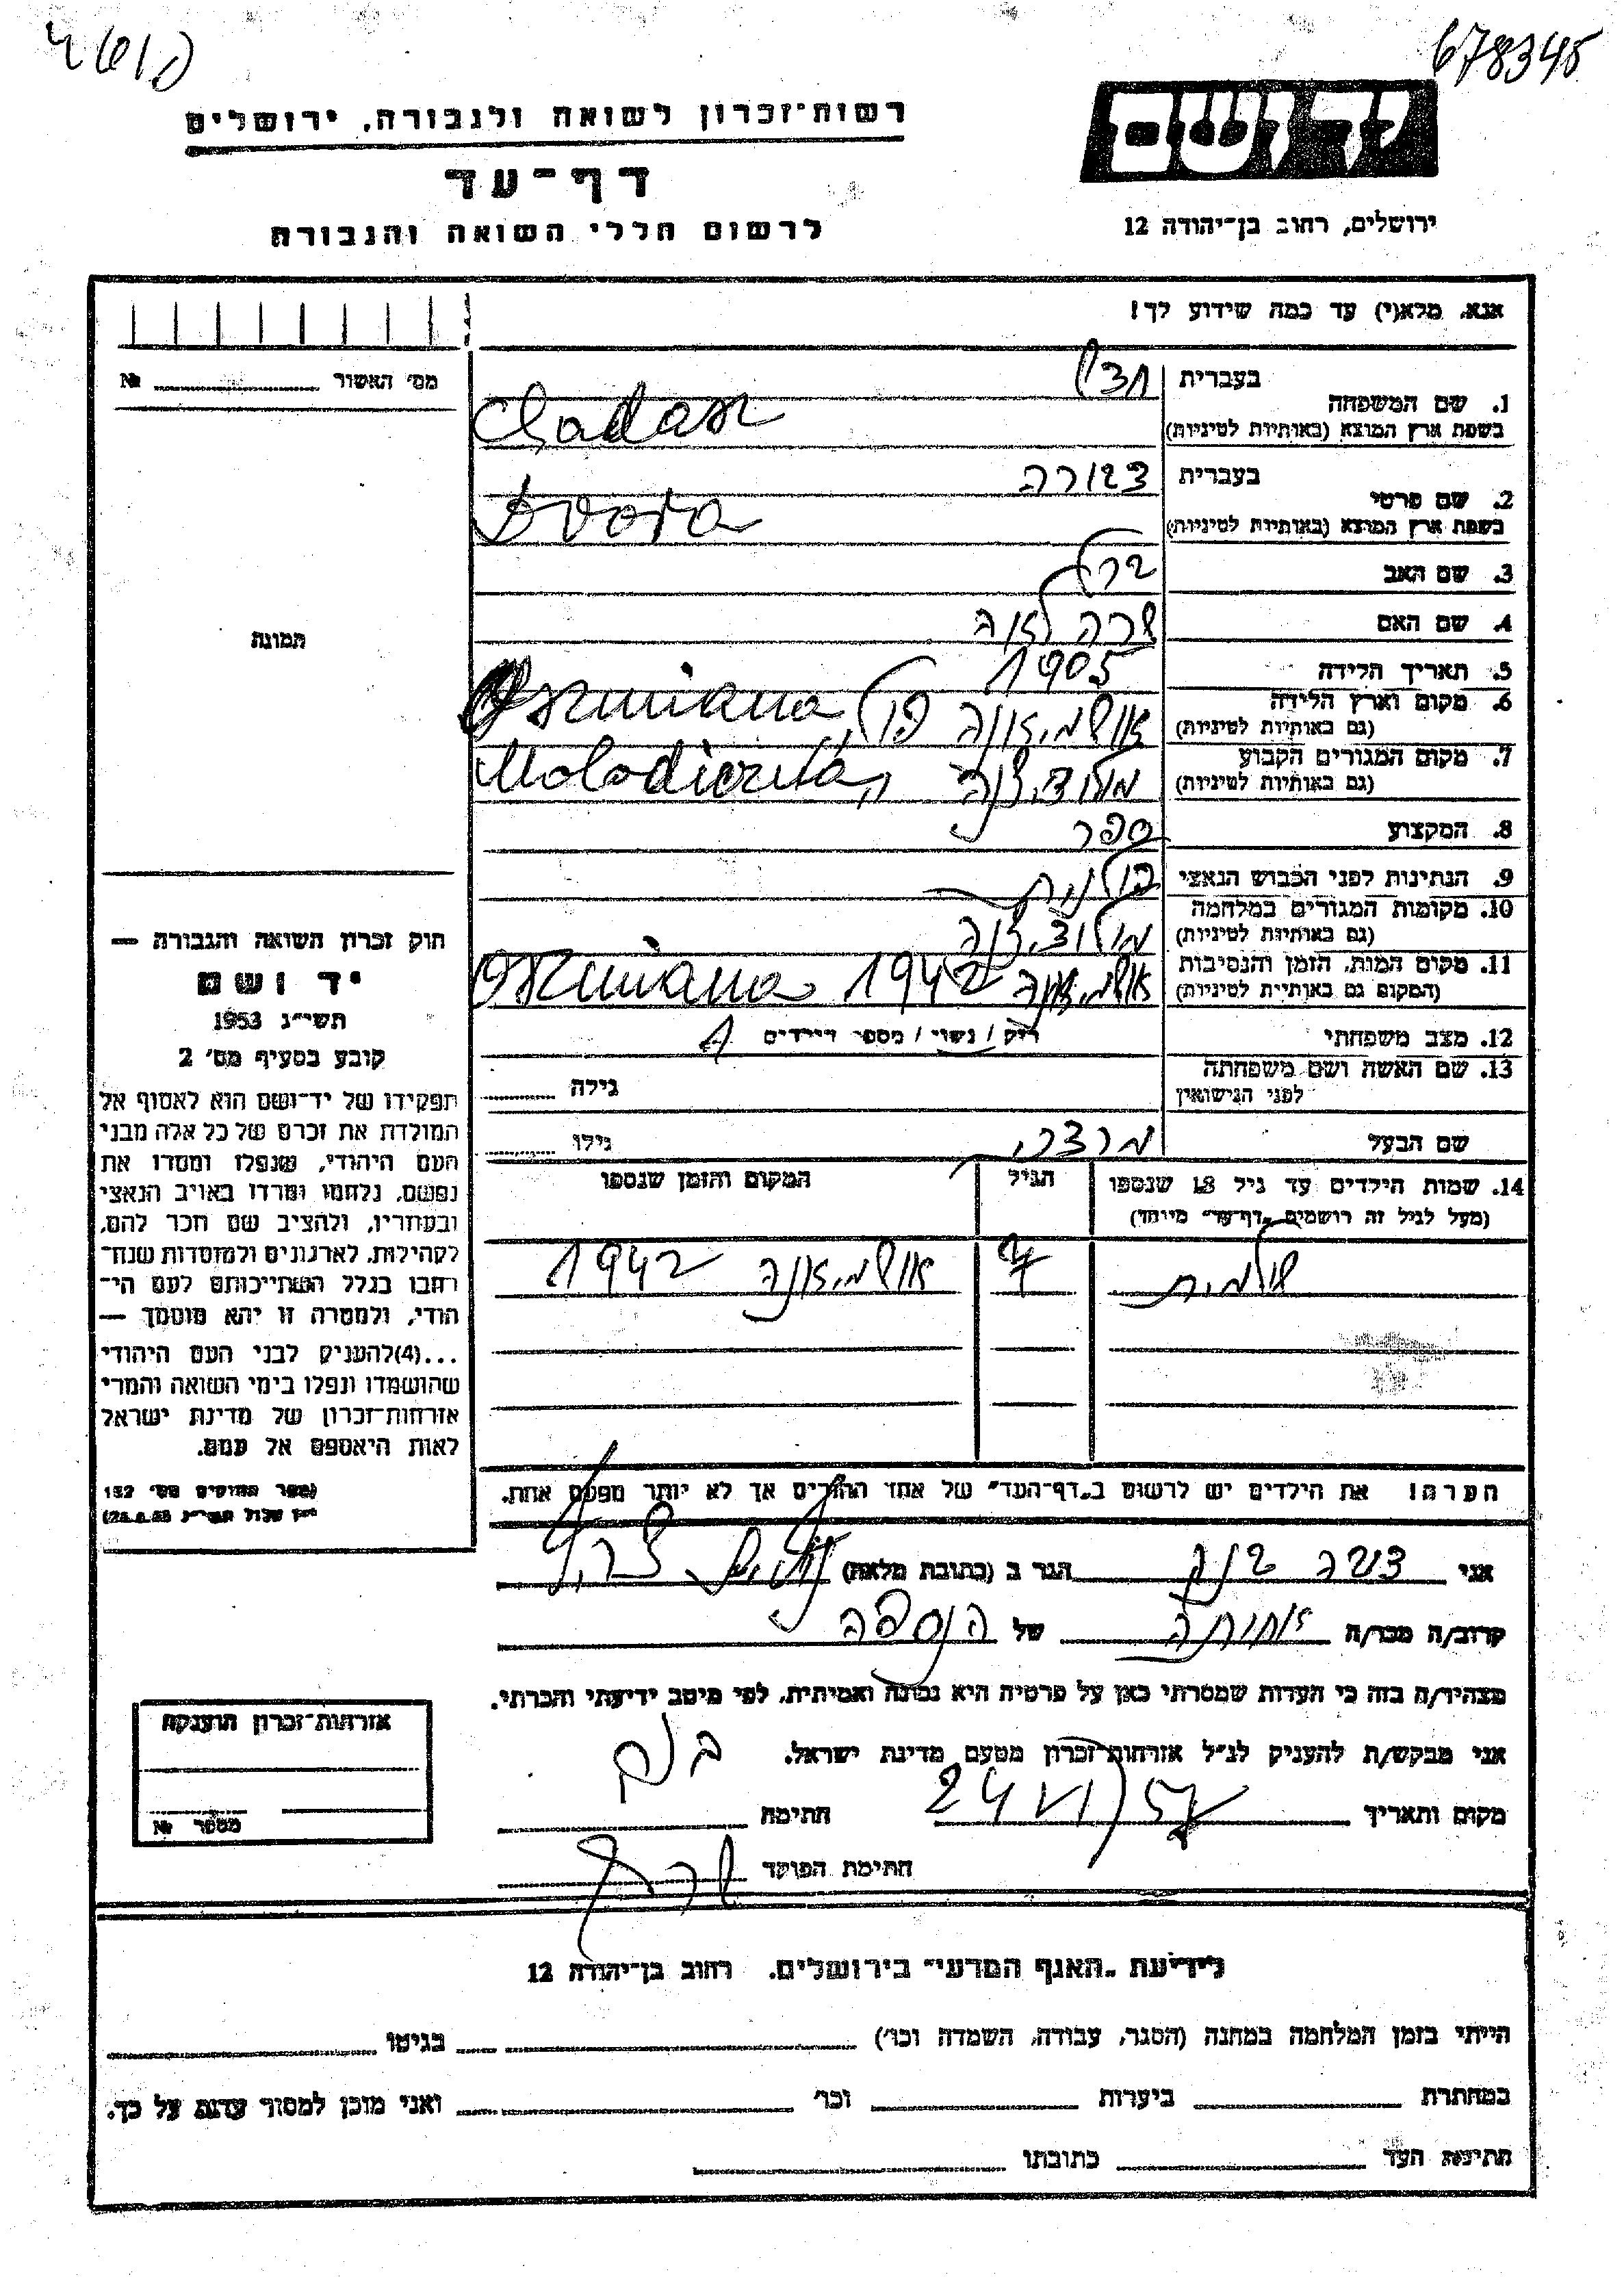 678345
רשות־זכרון לשואה ולגבורה, ירושלים
יד ושם
דף־עד
ירושלים, רחוב בן־יהודה 12
לרשום חללי השואה והגבורה
אנא, מלא(י) עד כמה שידוע לך!
1. שם המשפחה
בעברית חדש
בשפת ארץ המוצא (באותיות לטיניות) Chadasz
2. שם פרטי
בעברית דבורה
בשפת ארץ המוצא (באותיות לטיניות) Dvora
3. שם האב ברל
4. שם האם שרה לאה
5. תאריך הלידה 1905
6. מקום וארץ הלידה אושמיאנה פולין Oszmiana
(גם באותיות לטיניות)
7. מקום המגורים הקבוע
(גם באותיות לטיניות)
8. המקצוע ספר
9. הנתינות לפני הכבוש הנאצי פולנית
10. מקומות המגורים במלחמה
(גם באותיות לטיניות)
11. מקום המות, הזמן והנסיבות אושמיאנה 1942 Oszmiana
(המקום גם באותיות לטיניות)
12. מצב משפחתי רוק / נשוי / מספר הילדים 1
13. שם האשה ושם משפחתה
לפני הנישואין
גילה
שם הבעל מרדכי גילו
14. שמות הילדים עד גיל 18 שנספו הגיל המקום והזמן שנספו
(מעל לגיל זה רושמים "דף־עד" מיוחד)
שולמית 7 אושמיאנה 1942
הערה! את הילדים יש לרשום ב"דף־העד" של אחד ההורים אך לא יותר מפעם אחת.
אני הגר ב (כתובת מלאה)
קרוב/ה מכר/ה אחותה של הנספה
מצהיר/ה בזה כי העדות שמסרתי כאן על פרטיה היא נכונה ואמיתית, לפי מיטב ידיעתי והכרתי.
אני מבקש/ת להעניק לנ"ל אזרחות־זכרון מטעם מדינת ישראל.
מקום ותאריך חתימה
חתימת הפוקד
מס׳ האשור №
תמונה
חוק זכרון השואה והגבורה —
יד ושם
תשי"ג 1953
קובע בסעיף מס׳ 2
תפקידו של יד־ושם הוא לאסוף אל
המולדת את זכרם של כל אלה מבני
העם היהודי, שנפלו ומסרו את
נפשם, נלחמו ומרדו באויב הנאצי
ובעוזריו, ולהציב שם וזכר להם,
לקהילות, לארגונים ולמוסדות שנח־
רבו בגלל השתייכותם לעם הי־
הודי, ולמטרה זו יהא מוסמך —
...(4)להעניק לבני העם היהודי
שהושמדו ונפלו בימי השואה והמרי
אזרחות־זכרון של מדינת ישראל
לאות היאספם אל עמם.
(ספר החוקים מס׳ 132
אזרחות־זכרון הוענקה
מספר №
לידיעת "האגף המדעי" בירושלים, רחוב בן־יהודה 12
הייתי בזמן המלחמה במחנה (הסגר, עבודה, השמדה וכו׳) בגיטו
במחתרת ביערות וכו׳ ואני מוכן למסור עדות על כך.
חתימת העד כתובתו